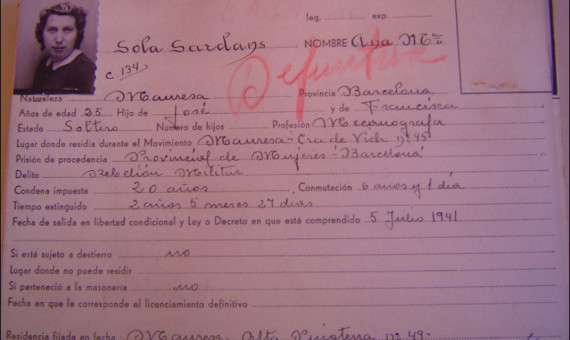 leg. exp.
Sola Sardans NOMBRE Ana Mª
C 134
Defuntva
Naturaleza Manresa Provincia Barcelona
Años de edad 25 Hijo de José y de Francisca
Estado Soltero Número de hijos Profesión Mecanografa
Lugar donde residía durante el Movimiento Manresa - Cra de Vich nº 45
Prisión de procedencia Provincial de Mujeres "Barcelona"
Delito Rebelión Militar
Condena impuesta 20 años Conmutación 6 años y 1 día
Tiempo extinguido 2 años 5 meses 27 dias
Fecha de salida en libertad condicional y Ley o Decreto en que está comprendido 5 Julio 1941
Si está sujeto a destierro no
Lugar donde no puede residir
Si perteneció a la masonería no
Fecha en que le corresponde el licenciamiento definitivo
Residencia fijada en fecha Manresa, Alta nº 49-